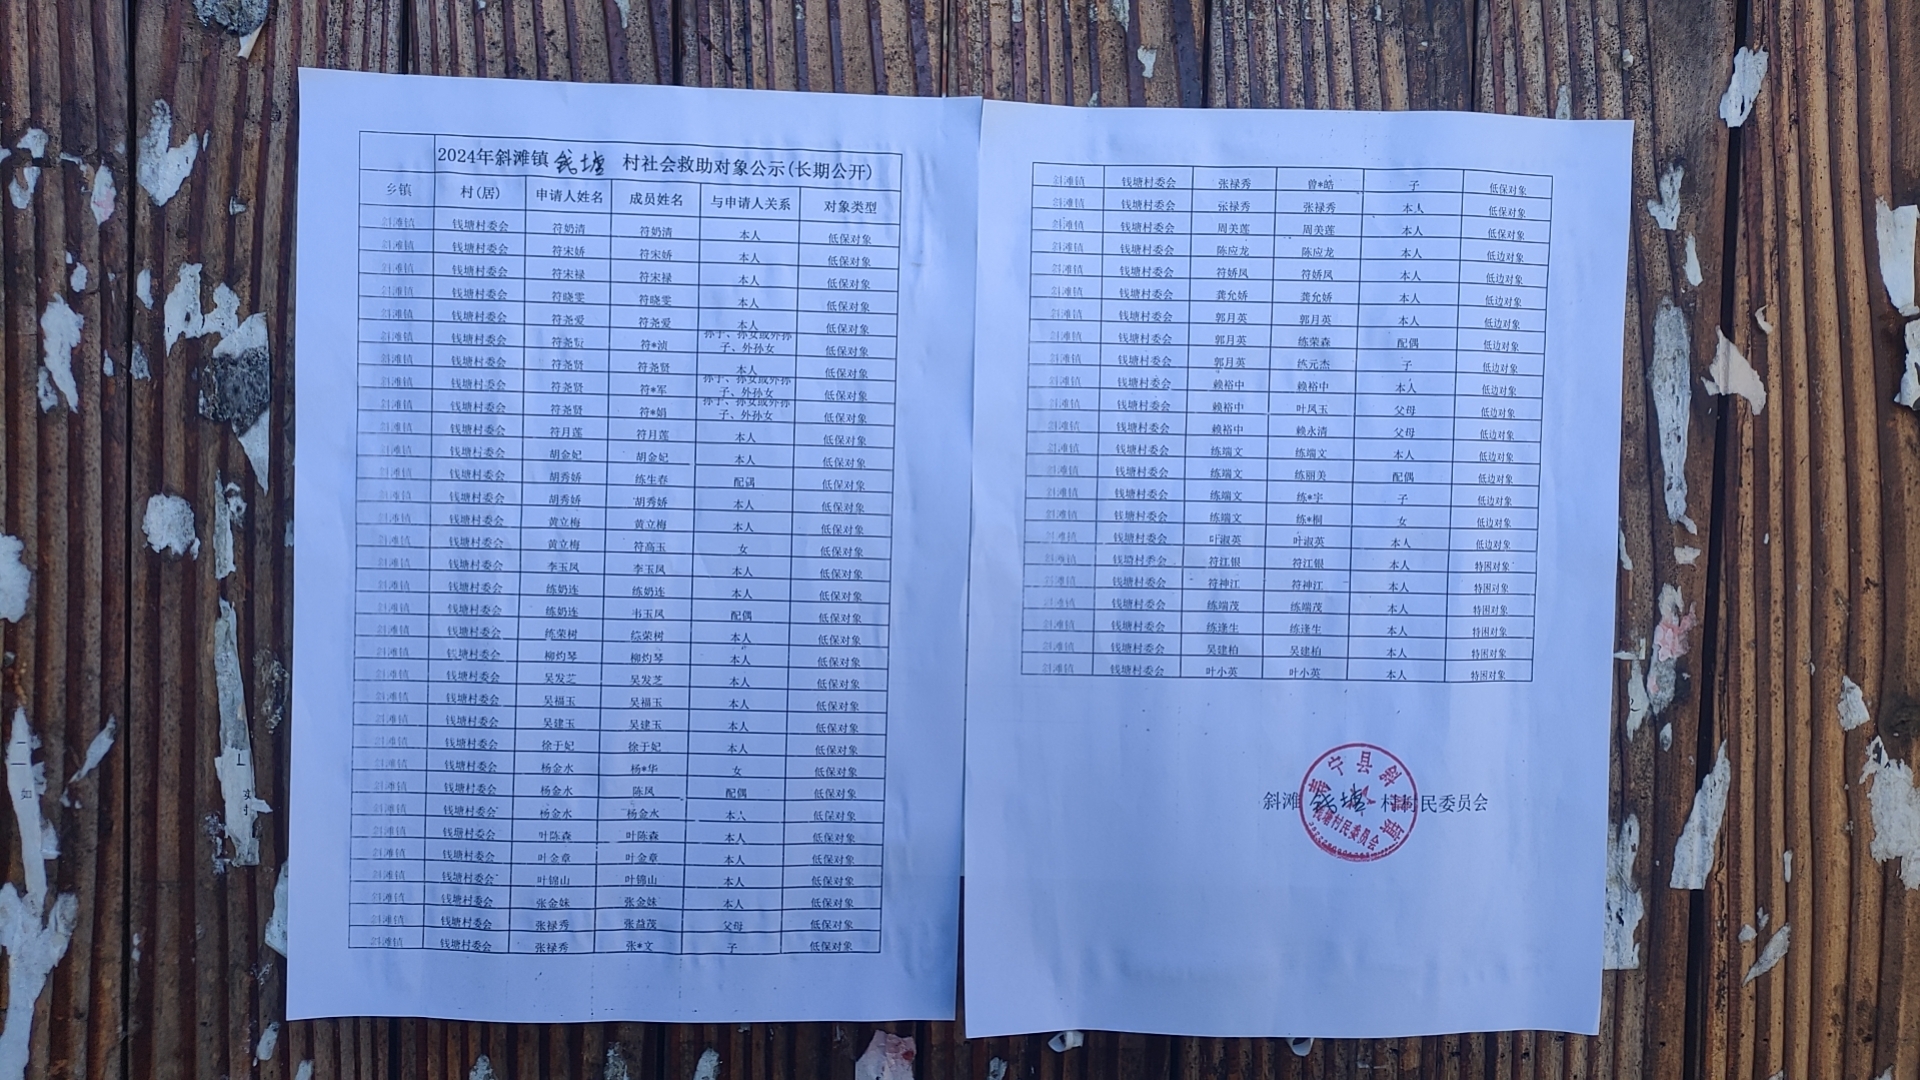 2024年斜滩镇 钱塘 村社会救助对象公示(长期公开)
乡镇 村(居) 申请人姓名 成员姓名 与申请人关系 对象类型
斜滩镇 钱塘村委会 符奶清 符奶清 本人 低保对象
斜滩镇 钱塘村委会 符宋娇 符宋娇 本人 低保对象
斜滩镇 钱塘村委会 符宋禄 符宋禄 本人 低保对象
斜滩镇 钱塘村委会 符晓雯 符晓雯 本人 低保对象
斜滩镇 钱塘村委会 符尧爱 符尧爱 本人 低保对象
斜滩镇 钱塘村委会 符尧贤 符*浈 孙子、孙女或外孙子、外孙女 低保对象
斜滩镇 钱塘村委会 符尧贤 符尧贤 本人 低保对象
斜滩镇 钱塘村委会 符尧贤 符*军 孙子、孙女或外孙子、外孙女 低保对象
斜滩镇 钱塘村委会 符尧贤 符*娟 孙子、孙女或外孙子、外孙女 低保对象
斜滩镇 钱塘村委会 符月莲 符月莲 本人 低保对象
斜滩镇 钱塘村委会 胡金妃 胡金妃 本人 低保对象
斜滩镇 钱塘村委会 胡秀娇 练生春 配偶 低保对象
斜滩镇 钱塘村委会 胡秀娇 胡秀娇 本人 低保对象
斜滩镇 钱塘村委会 黄立梅 黄立梅 本人 低保对象
斜滩镇 钱塘村委会 黄立梅 符高玉 女 低保对象
斜滩镇 钱塘村委会 李玉凤 李玉凤 本人 低保对象
斜滩镇 钱塘村委会 练奶连 练奶连 本人 低保对象
斜滩镇 钱塘村委会 练奶连 韦玉凤 配偶 低保对象
斜滩镇 钱塘村委会 练荣树 练荣树 本人 低保对象
斜滩镇 钱塘村委会 柳灼琴 柳灼琴 本人 低保对象
斜滩镇 钱塘村委会 吴发芝 吴发芝 本人 低保对象
斜滩镇 钱塘村委会 吴福玉 吴福玉 本人 低保对象
斜滩镇 钱塘村委会 吴建玉 吴建玉 本人 低保对象
斜滩镇 钱塘村委会 徐于妃 徐于妃 本人 低保对象
斜滩镇 钱塘村委会 杨金水 杨*华 女 低保对象
斜滩镇 钱塘村委会 杨金水 陈凤 配偶 低保对象
斜滩镇 钱塘村委会 杨金水 杨金水 本人 低保对象
斜滩镇 钱塘村委会 叶陈森 叶陈森 本人 低保对象
斜滩镇 钱塘村委会 叶金章 叶金章 本人 低保对象
斜滩镇 钱塘村委会 叶锦山 叶锦山 本人 低保对象
斜滩镇 钱塘村委会 张金妹 张金妹 本人 低保对象
斜滩镇 钱塘村委会 张禄秀 张益茂 父母 低保对象
斜滩镇 钱塘村委会 张禄秀 张*文 子 低保对象
斜滩镇 钱塘村委会 张禄秀 曾*皓 子 低保对象
斜滩镇 钱塘村委会 张禄秀 张禄秀 本人 低保对象
斜滩镇 钱塘村委会 周美莲 周美莲 本人 低保对象
斜滩镇 钱塘村委会 陈应龙 陈应龙 本人 低边对象
斜滩镇 钱塘村委会 符娇凤 符娇凤 本人 低边对象
斜滩镇 钱塘村委会 龚允娇 龚允娇 本人 低边对象
斜滩镇 钱塘村委会 郭月英 郭月英 本人 低边对象
斜滩镇 钱塘村委会 郭月英 练荣森 配偶 低边对象
斜滩镇 钱塘村委会 郭月英 练元杰 子 低边对象
斜滩镇 钱塘村委会 赖裕中 赖裕中 本人 低边对象
斜滩镇 钱塘村委会 赖裕中 叶凤玉 父母 低边对象
斜滩镇 钱塘村委会 赖裕中 赖永清 父母 低边对象
斜滩镇 钱塘村委会 练端文 练端文 本人 低边对象
斜滩镇 钱塘村委会 练端文 练丽美 配偶 低边对象
斜滩镇 钱塘村委会 练端文 练*宇 子 低边对象
斜滩镇 钱塘村委会 练端文 练*桐 女 低边对象
斜滩镇 钱塘村委会 叶淑英 叶淑英 本人 低边对象
斜滩镇 钱塘村委会 符江银 符江银 本人 特困对象
斜滩镇 钱塘村委会 符神江 符神江 本人 特困对象
斜滩镇 钱塘村委会 练端茂 练端茂 本人 特困对象
斜滩镇 钱塘村委会 练逢生 练逢生 本人 特困对象
斜滩镇 钱塘村委会 吴建柏 吴建柏 本人 特困对象
斜滩镇 钱塘村委会 叶小英 叶小英 本人 特困对象
斜滩 钱塘 村村民委员会
寿宁县斜滩镇
钱塘村民委员会